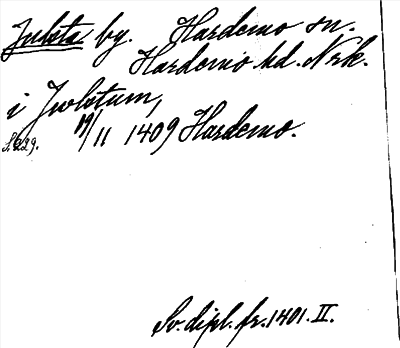 Julsta by. Hardemo sn.
Hardemo hd. Nrk.
i Jwlstum,
S. 229. 19/11 1409 Hardemo.
Sv. dipl. fr. 1401. II.